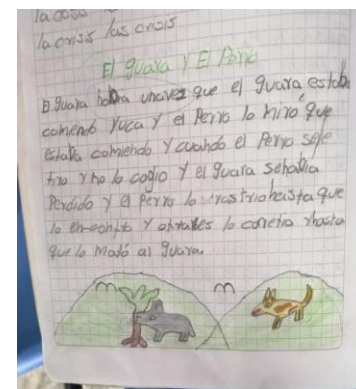 la cosa
la crisis las crisis
El guara Y El Perro
El guara había unavez que el guara estaba
comiendo Yuca Y el Perro lo miró que
estaba comiendo Y cuando el Perro sele
tiro Y no lo cogio Y el guara sehabia
Perdido Y el Perro lo rrastrio hasta que
lo encontró Y atraves lo carreria Yhasta
que lo Mató al guara.